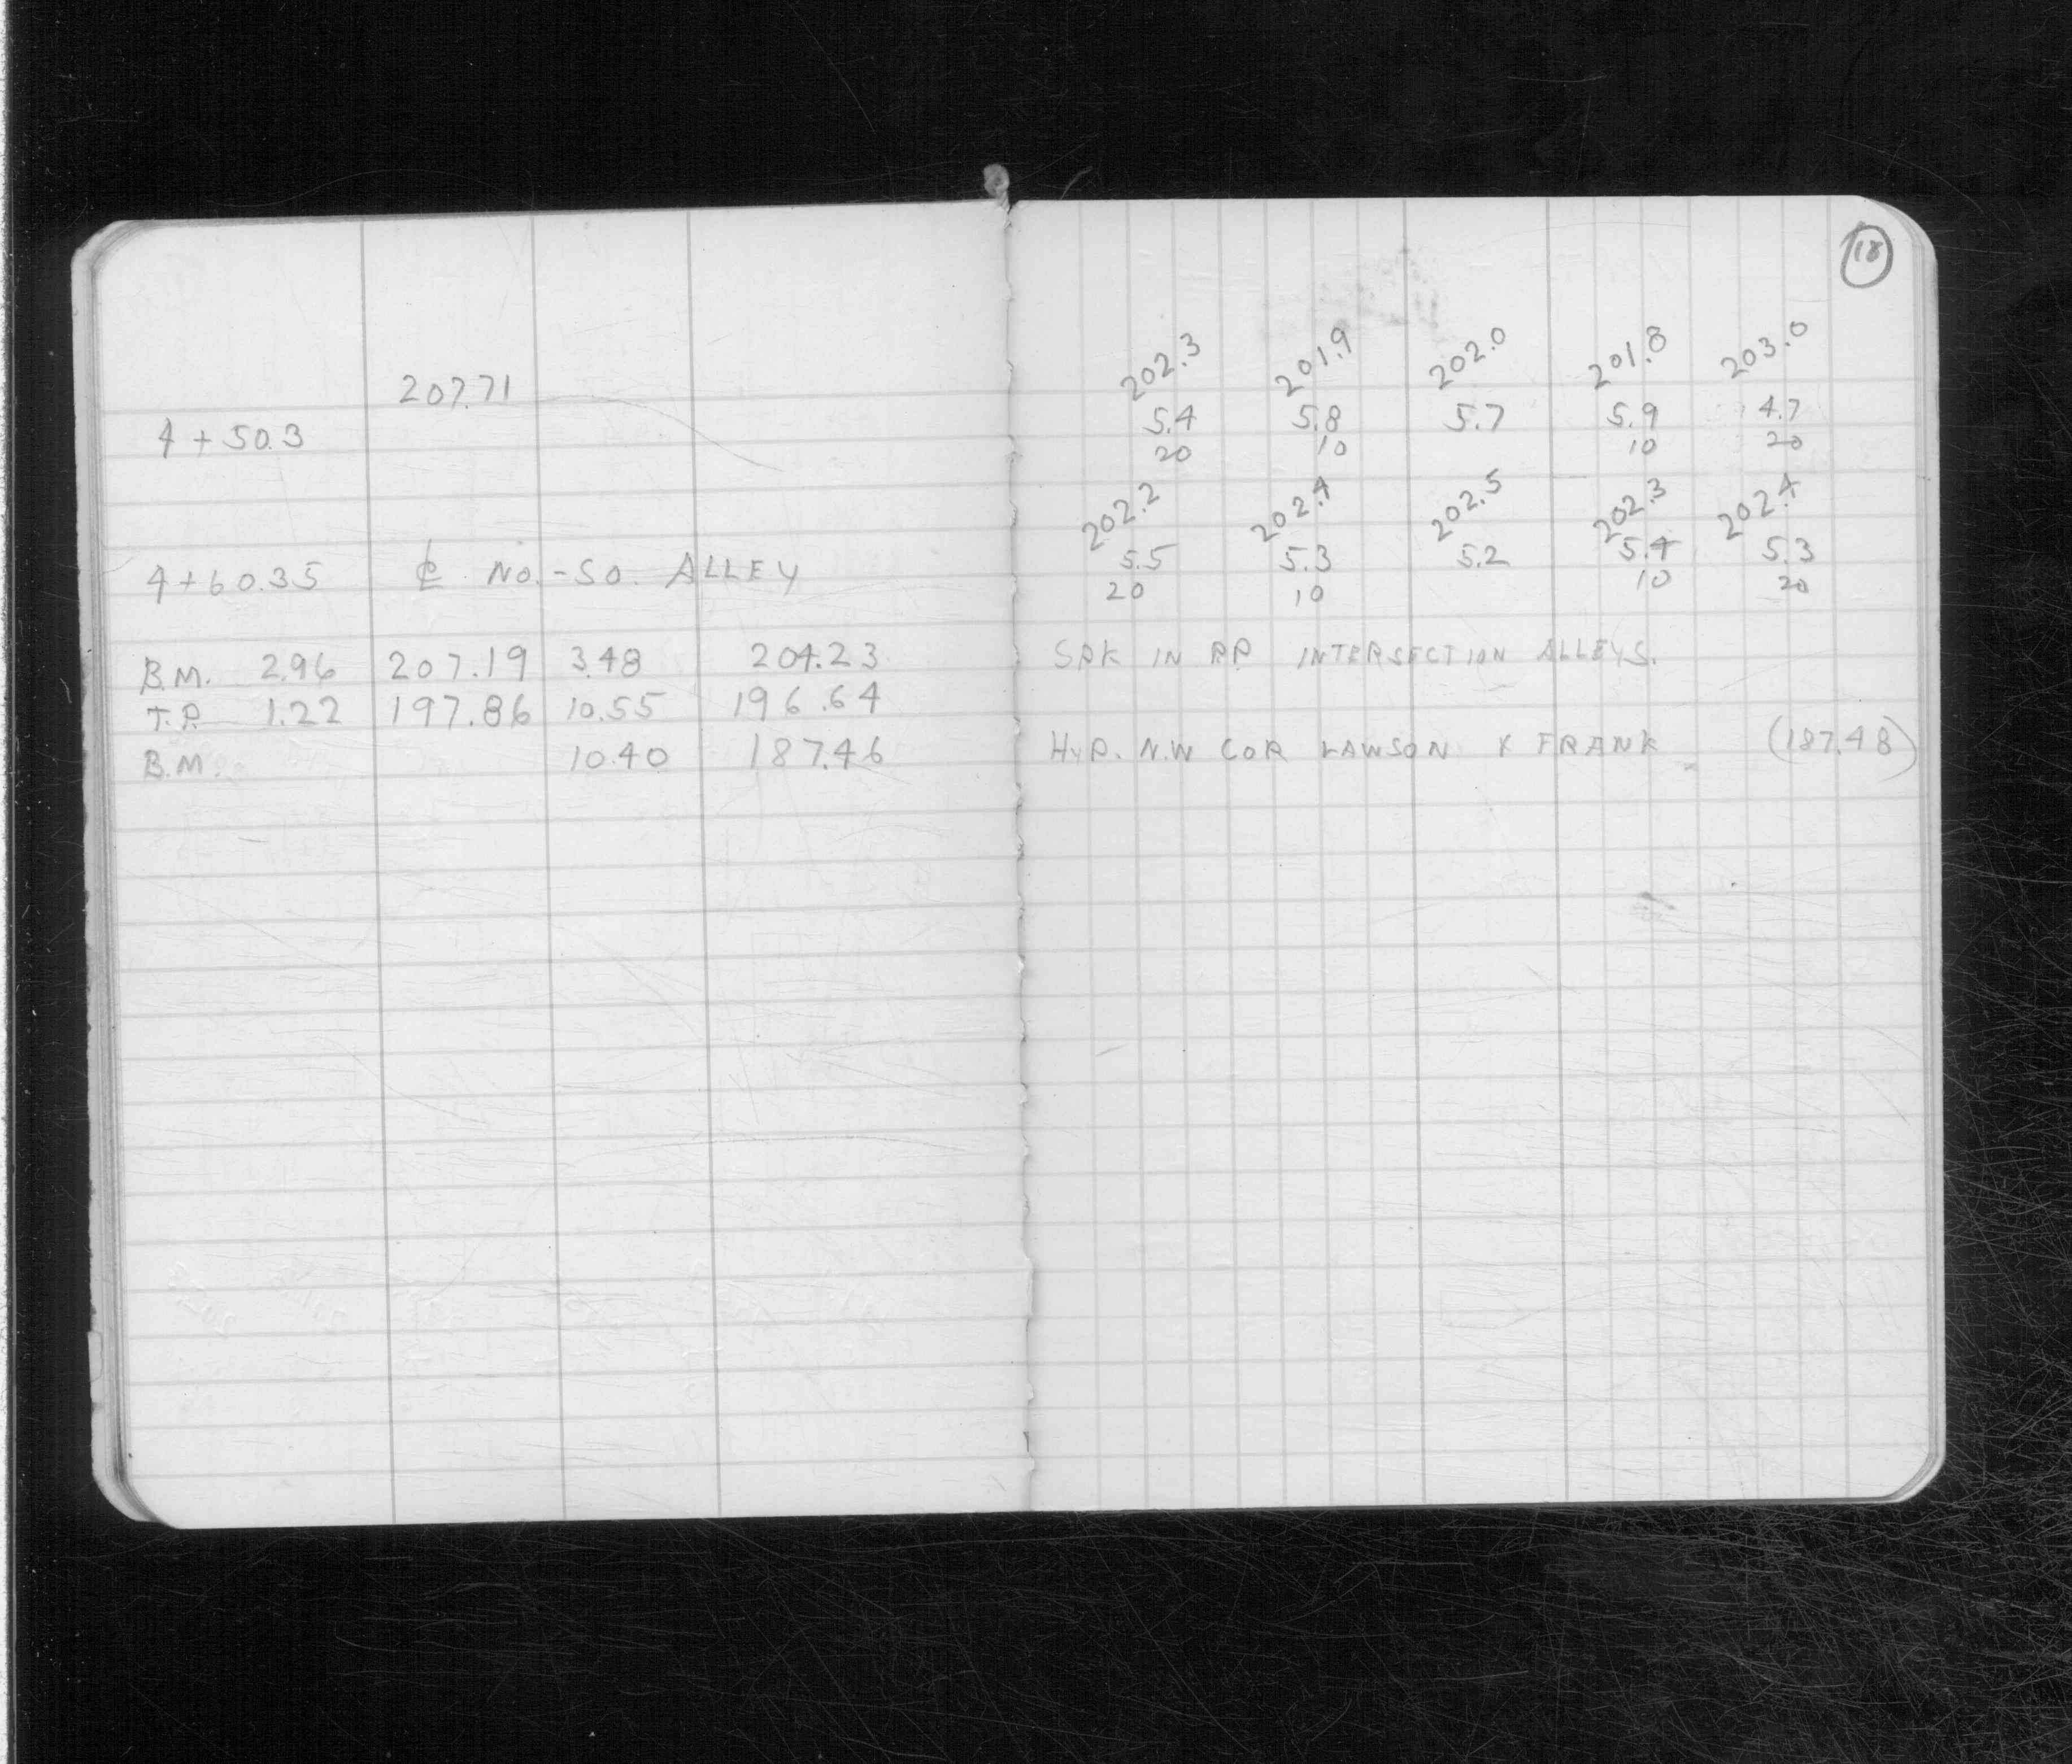 18
207.71
4+50.3
4+60.35 ȼ No.-So. ALLEY
B.M. 2.96 207.19 3.48 204.23
T.P. 1.22 197.86 10.55 196.64
B.M. 10.40 187.46
202.3 201.9 202.0 201.8 203.0
5.4 5.8 5.7 5.9 4.7
20 10 10 20
202.2 202.4 202.5 202.3 202.4
5.5 5.3 5.2 5.4 5.3
20 10 10 20
SPK IN P.P. INTERSECTION ALLEYS.
HYD. N.W COR LAWSON & FRANK (187.48)